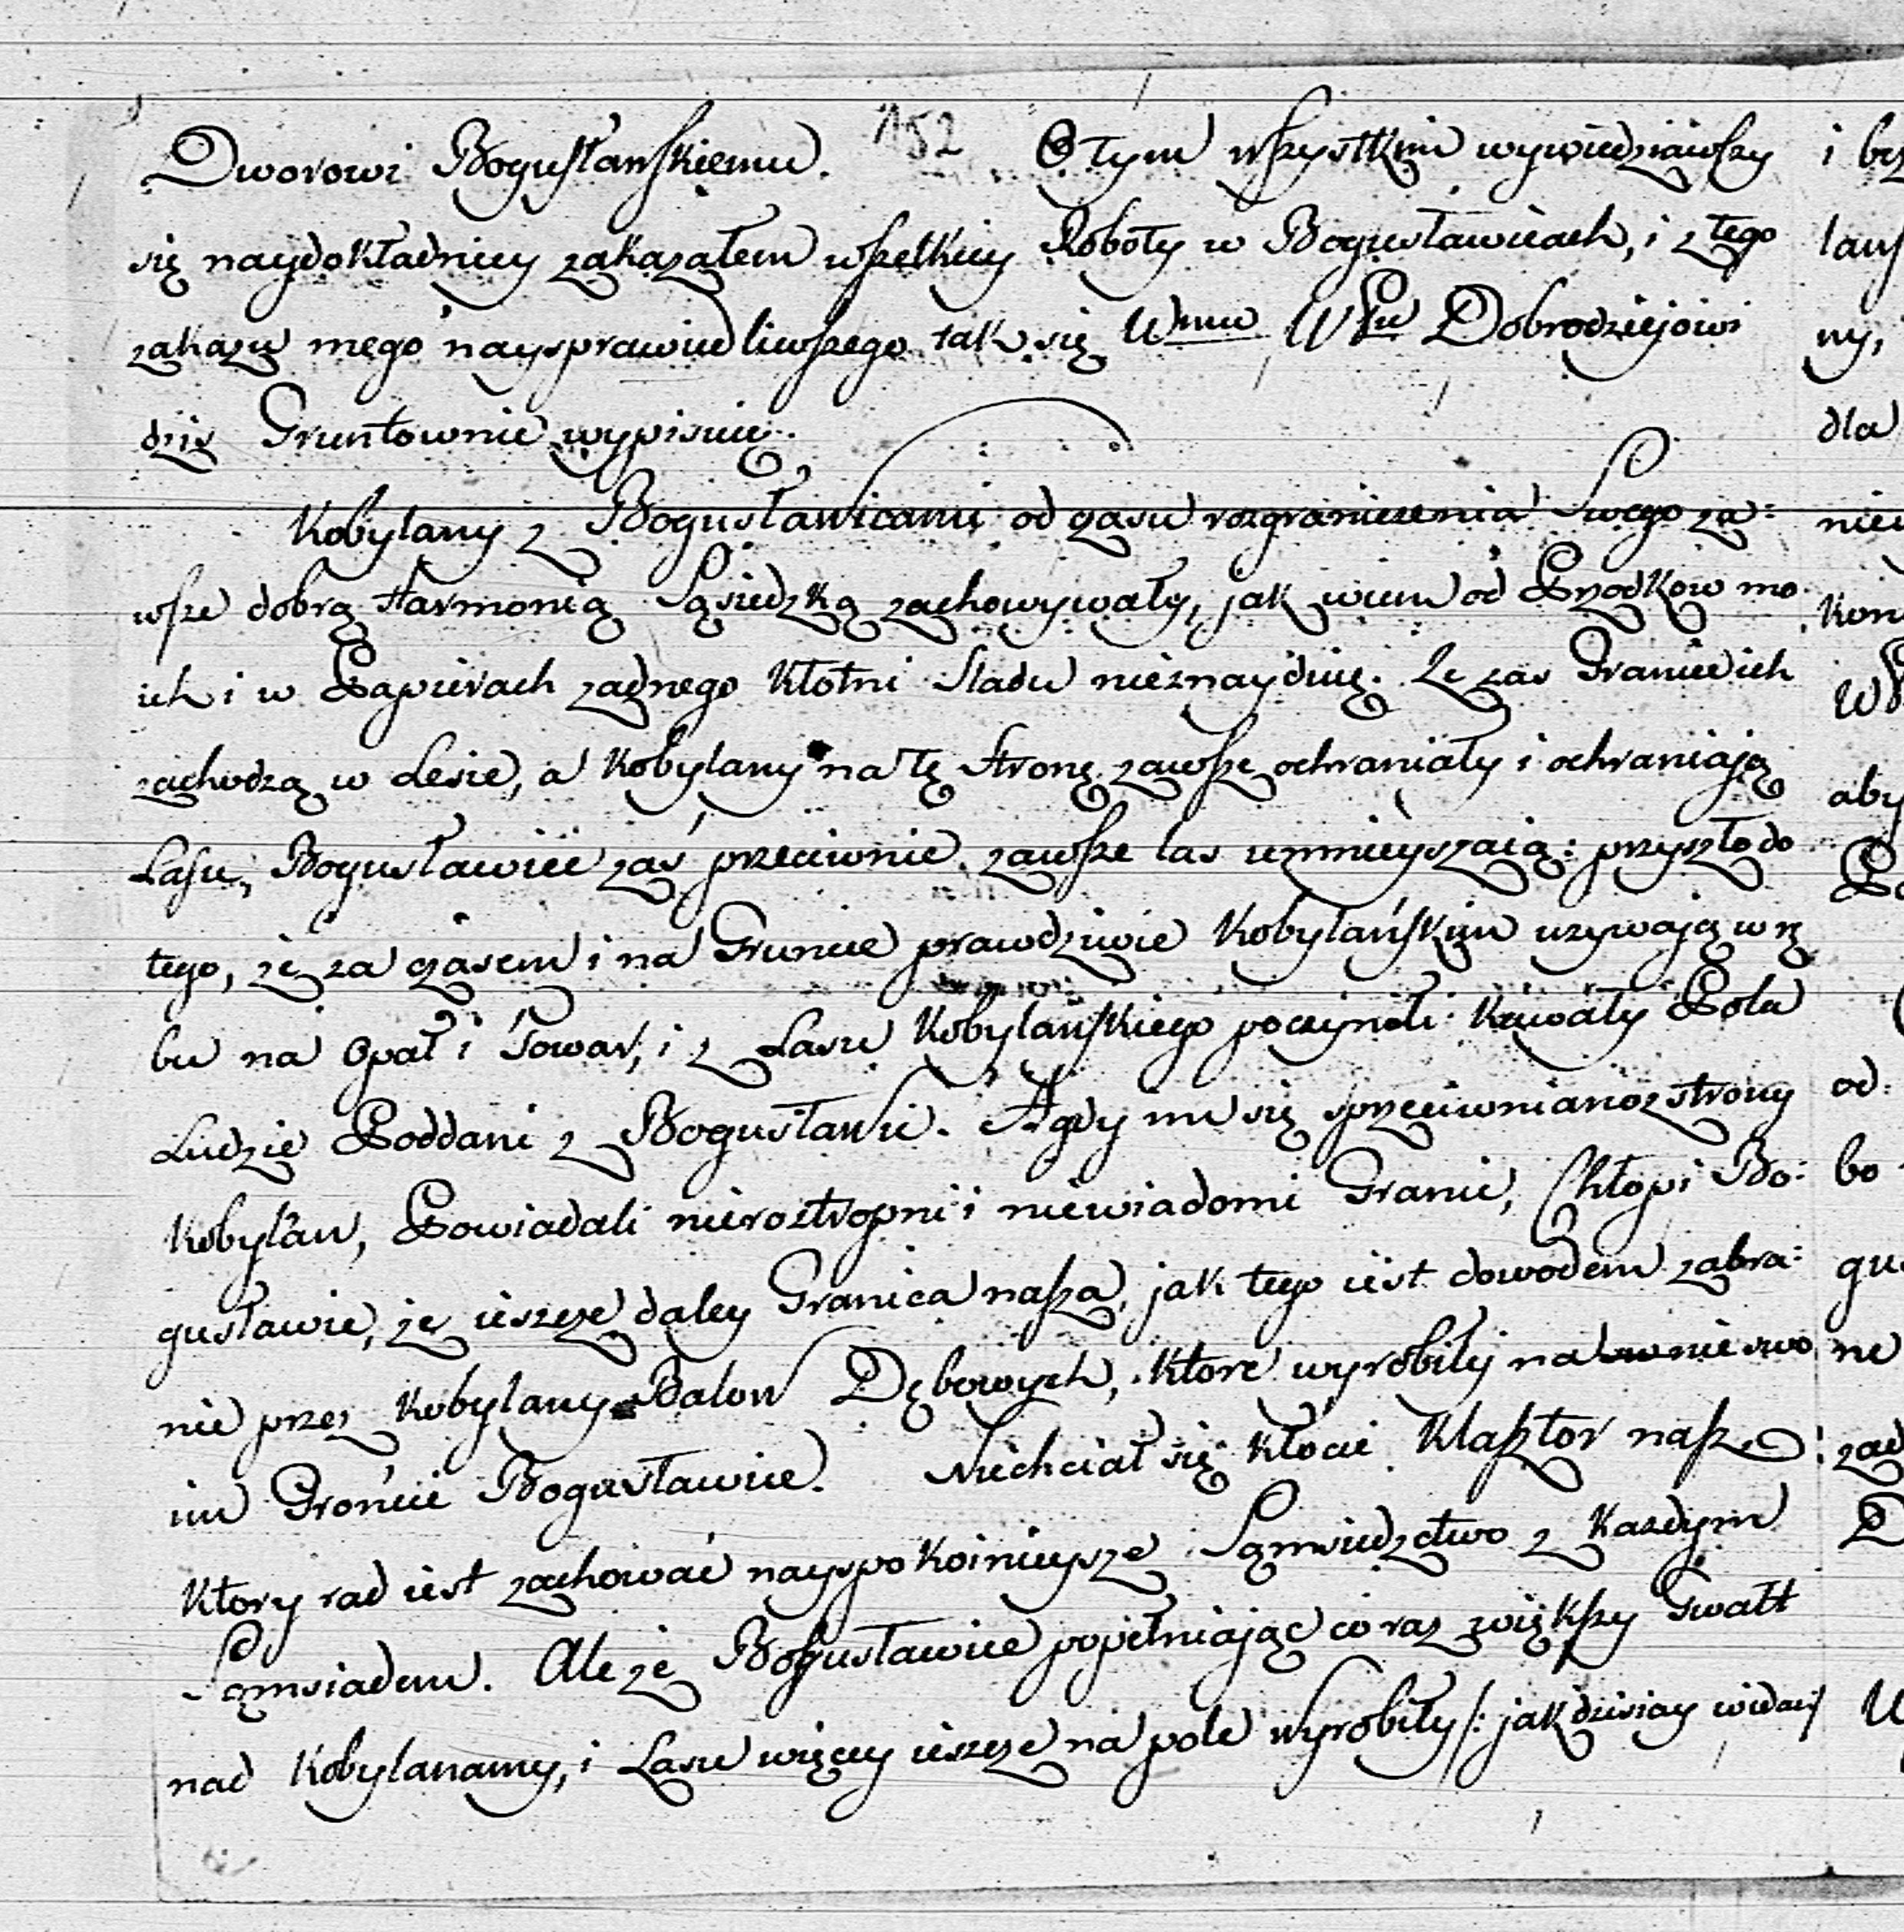 152
Dworowi Bogusławskiemu. O tym wszystkim wywiedziawszy
się naydokładniey zakazałem wszelkiey Roboty w Bogusławicach, i z tego
zakazu mego naysprawiedliwszego tak się Wmu WPu Dobrodziejowi
dziś Gruntownie wypisuię.
Kobylany z Bogusławicami od czasu rozgraniczenia Swego za:
wsze dobrą Harmonią Sąsiedzką zachowywały, jak wiem od Przodkow mo
ich i w Papierach zadnego Kłotni Sladu nieznayduię. Ze zas Granice ich
zachodzą w Lesie, a Kobylany na tę Stronę zawsze ochraniały i ochraniają
Lasu, Bogusławice zaś przeciwnie zawsze las umnieyszaią: przyszło do
tego, że za czasem i na Gruncie prawdziwie Kobylańskim uzywają wrę
bu na Opał i Towar, i z Lasu Kobylańskiego poczynili Kawały Pola
Ludzie Poddani z Bogusławic. A gdy im się sprzeciwniano z strony
Kobylan, Powiadali nieroztropni i niewiadomi Granic, Chłopi Bo:
gusławic, że ieszcze daley Granica nasza, jak tego iest dowodem zabra:
nie przez Kobylany Balow Dębowych, Ktore wyrobiły na nie swo
im Gróncie Bogusławice. Niechciał się Kłócić Klasztor nasz
Ktory rad iest zachować nayspokoinieysze Sąmsiedztwo z Kazdym
Sąmsiadem. Ale że Bogusławice popełniając co raz zwiększy Gwałt
nad Kobylanamy, i Lasu więcey ieszcze na pole wyrobiły /: jak dzisiay widać/
i
dla
aby
od
bo
ne